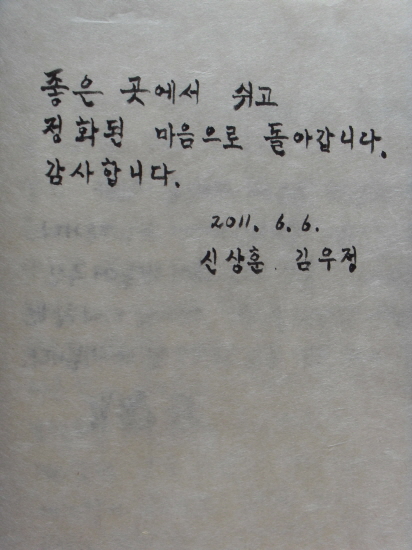 좋은 곳에서 쉬고
정화된 마음으로 돌아갑니다.
감사합니다.
2011. 6. 6.
신상훈. 김우정